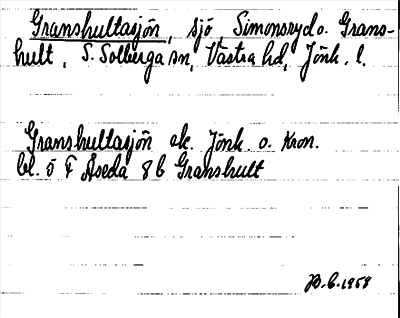 Granshultasjön, sjö, Simonsryd o. Grans-
hult, S. Solberga sn, Västra hd, Jönk. l.
Granshultasjön ek. Jönk. o. Kron.
bl. 5 F Åseda 8 b Granshult
B.C. 1958